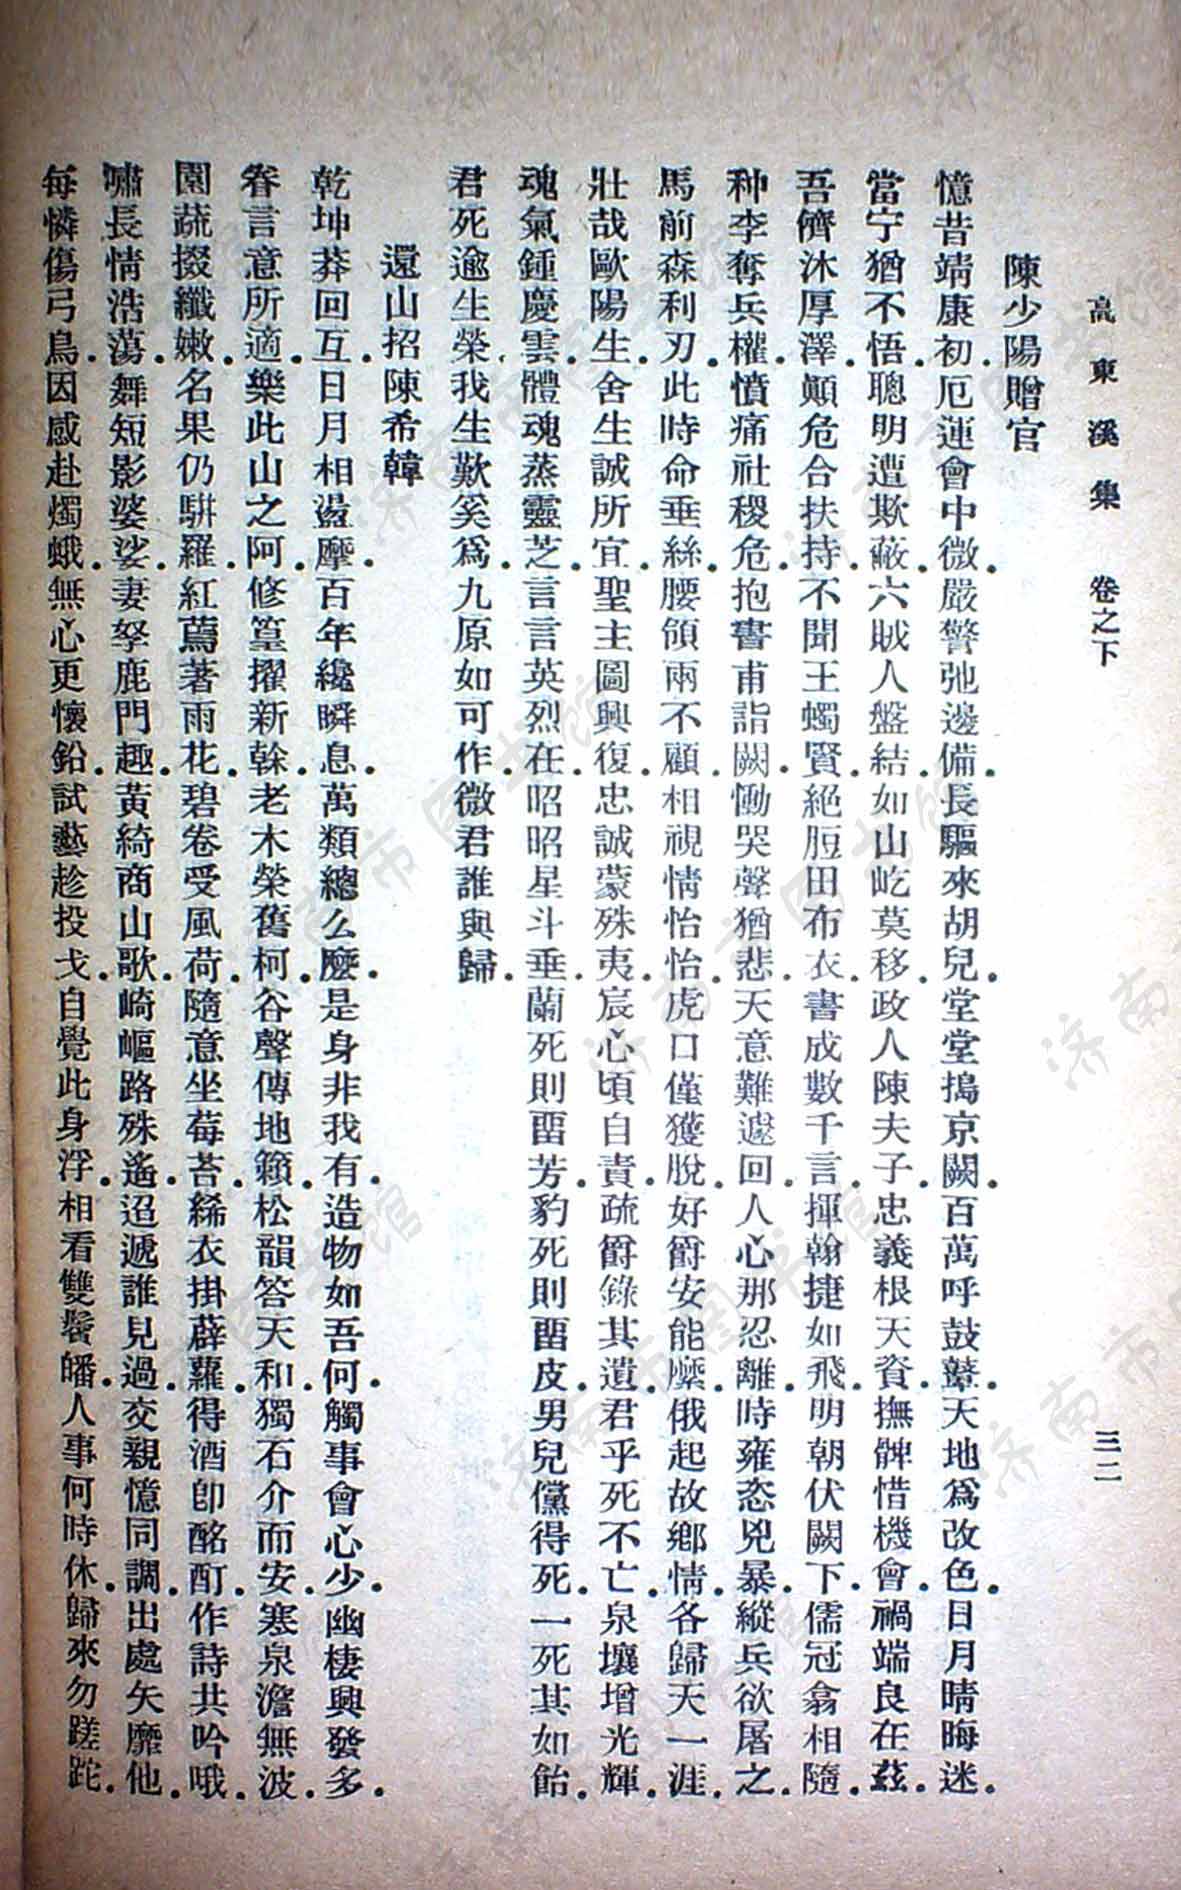 高東溪集　卷之下　三二
陳少陽贈官
憶昔靖康初厄運會中微嚴警弛邊備長驅來胡兒堂堂搗京闕百萬呼鼓鼙天地爲改色日月晴晦迷
當宁猶不悟聰明遭欺蔽六賊人盤結如山屹莫移政人陳夫子忠義根天資撫髀惜機會禍端良在茲
吾儕沐厚澤顚危合扶持不聞王蠋賢絕脰田布衣書成數千言揮翰捷如飛明朝伏闕下儒冠翕相隨
种李奪兵權憤痛社稷危抱書甫詣闕慟哭聲猶悲天意難遽回人心那忍離時雍恣兇暴縱兵欲屠之
馬前森利刃此時命垂絲腰領兩不顧相視情怡怡虎口僅獲脫好爵安能縻俄起故鄉情各歸天一涯
壯哉歐陽生舍生誠所宜聖主圖興復忠誠蒙殊夷宸心頃自責疏爵錄其遺君乎死不亡泉壤增光輝
魂氣鍾慶雲體魂蒸靈芝言言英烈在昭昭星斗垂蘭死則畱芳豹死則畱皮男兒儻得死一死其如飴
君死逾生榮我生歎奚爲九原如可作微君誰與歸
還山招陳希韓
乾坤莽回互日月相盪摩百年纔瞬息萬類總么麽是身非我有造物如吾何觸事會心少幽棲興發多
眷言意所適樂此山之阿修篁擢新榦老木榮舊柯谷聲傳地籟松韻答天和獨石介而安寒泉澹無波
園蔬掇纖嫩名果仍駢羅紅蔫著雨花碧卷受風荷隨意坐莓苔絺衣掛薜蘿得酒卽酩酊作詩共吟哦
嘯長情浩蕩舞短影婆娑妻孥鹿門趣黃綺商山歌崎嶇路殊遙迢遞誰見過交親憶同調出處矢靡他
每憐傷弓鳥因感赴燭蛾無心更懷鉛試藝趁投戈自覺此身浮相看雙鬢皤人事何時休歸來勿蹉跎